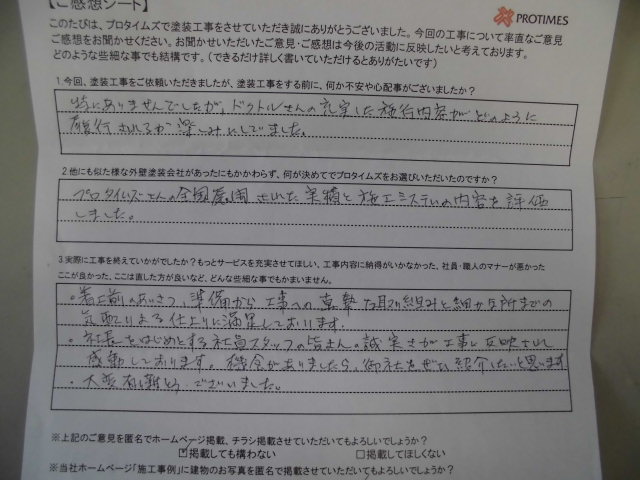 【ご感想シート】
PROTIMES
このたびは、プロタイムズで塗装工事をさせていただき誠にありがとうございました。今回の工事について率直なご意見
ご感想をお聞かせください。お聞かせいただいたご意見・ご感想は今後の活動に反映したいと考えております。
どのような些細な事でも結構です。（できるだけ詳しく書いていただけるとありがたいです）
1.今回、塗装工事をご依頼いただきましたが、塗装工事をする前に、何か不安や心配事がございましたか？
特にありませんでしたが、ドクトルさんの充実した施行内容がどのように
履行されるか楽しみにしてました。
2.他にも似た様な外壁塗装会社があったにもかかわらず、何が決めてでプロタイムズをお選びいただいたのですか？
プロタイムズさんの全国展開された業績と施工システムの内容を評価
しました。
3.実際に工事を終えていかがでしたか？もっとサービスを充実させてほしい、工事内容に納得がいかなかった、社員・職人のマナーが悪かった
ここが良かった、ここは直した方が良いなど、どんな些細な事でもかまいません。
・着工前のあいさつ、準備から工事への真摯な取り組みと細か な所までの
気配りによる仕上りに満足しております.
・社長をはじめとする社員スタッフの皆さんの誠実さが工事に反映され
感動しております。機会がありましたら、御社をぜひ紹介したいと思います
・大変有難とうございました。
※上記のご意見を匿名でホームページ掲載、チラシ掲載させていただいてもよろしいでしょうか？
☑掲載しても構わない □掲載してほしくない
※当社ホームページ「施工事例」に建物のお写真を匿名で掲載させていただいてもよろしいでしょうか？